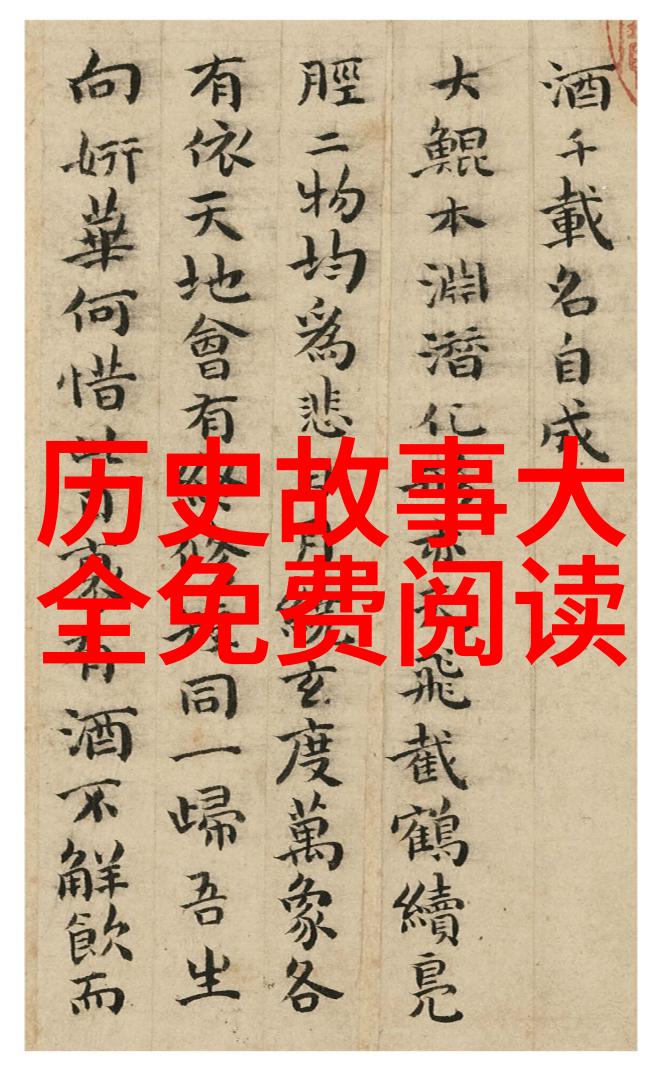 酒千載名自成
大鯤本淵潛化亦飛截鶴續鳧
脛二物均爲悲日月玄度萬象各
有依天地會有終修同一歸吾生
向妍華何惜此有酒不解飲而
历史故事大
全免费阅读